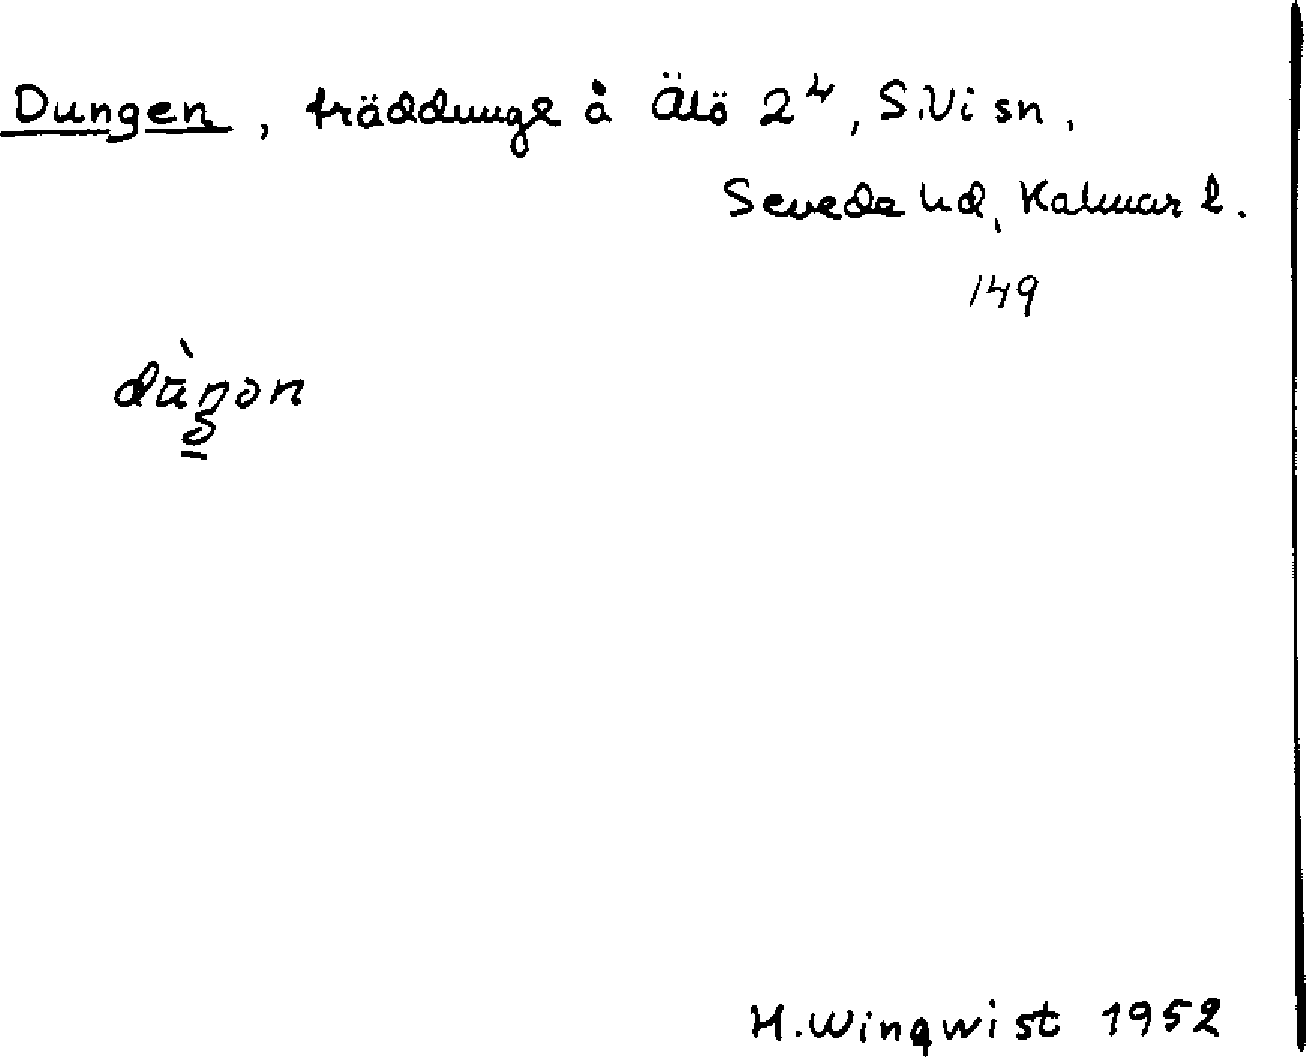 Dungen, träddunge å Älö 2⁴, S.Vi sn,
Sevede hd, Kalmar l.
149
dùŋən
H.Winqwist 1952